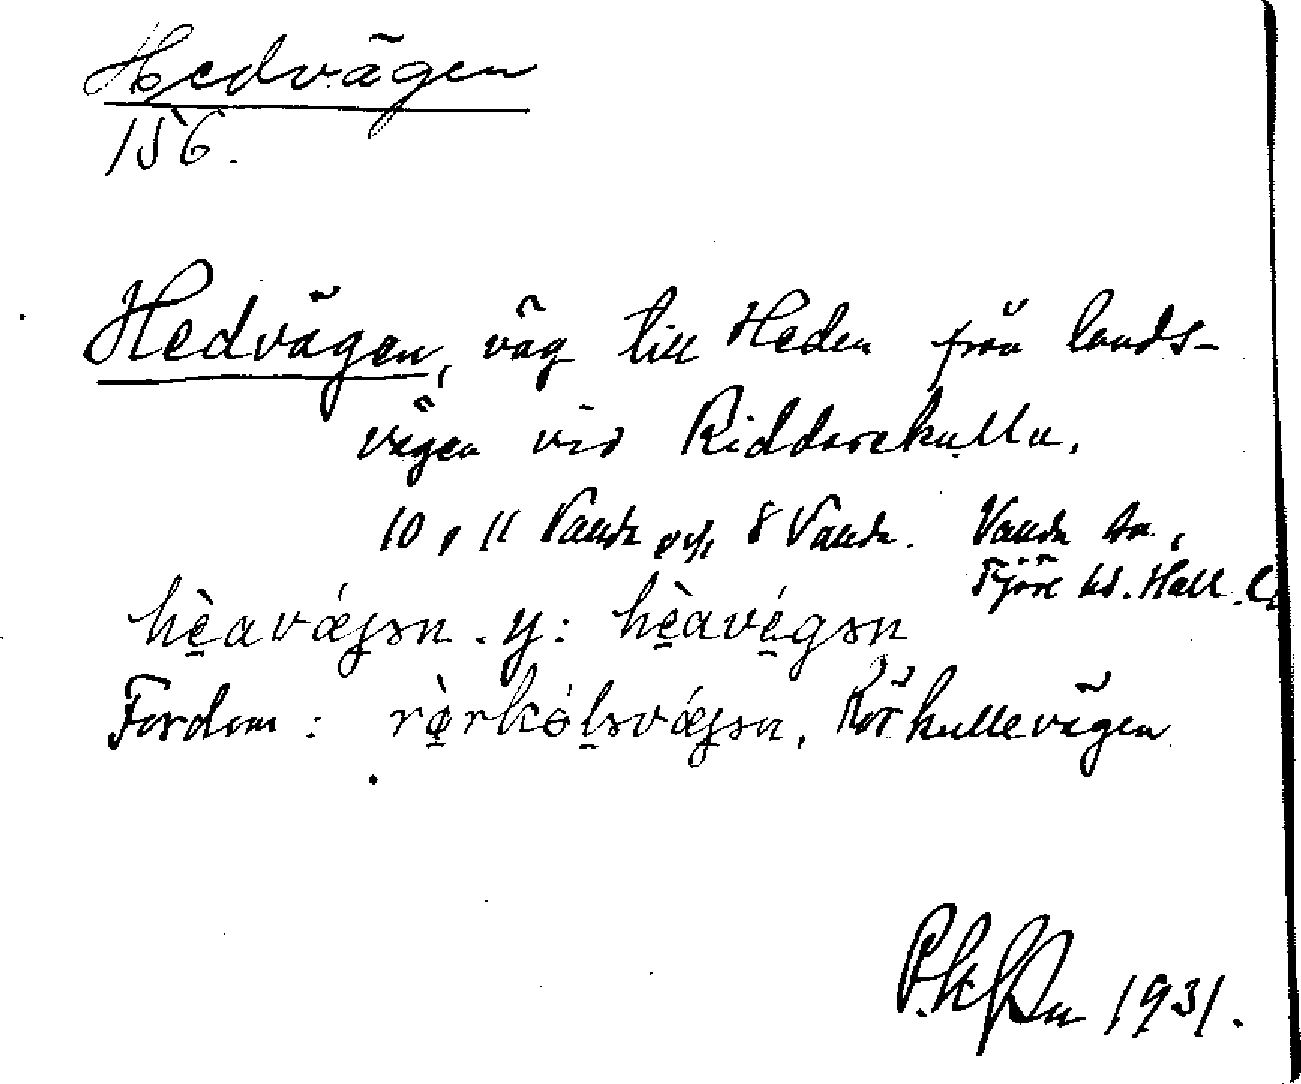 Hedvägen
156.
Hedvägen, väg till Heden från lands-
vägen vid Ridderskulla.
10, 11 Vanda och 8 Vanda. Vanda sn,
Fjäre hd. Hall. l.
hèavǽgən. y: hèavégən
Fordom: rø̀rkóləvǽgən, Rörkullevägen
1931.